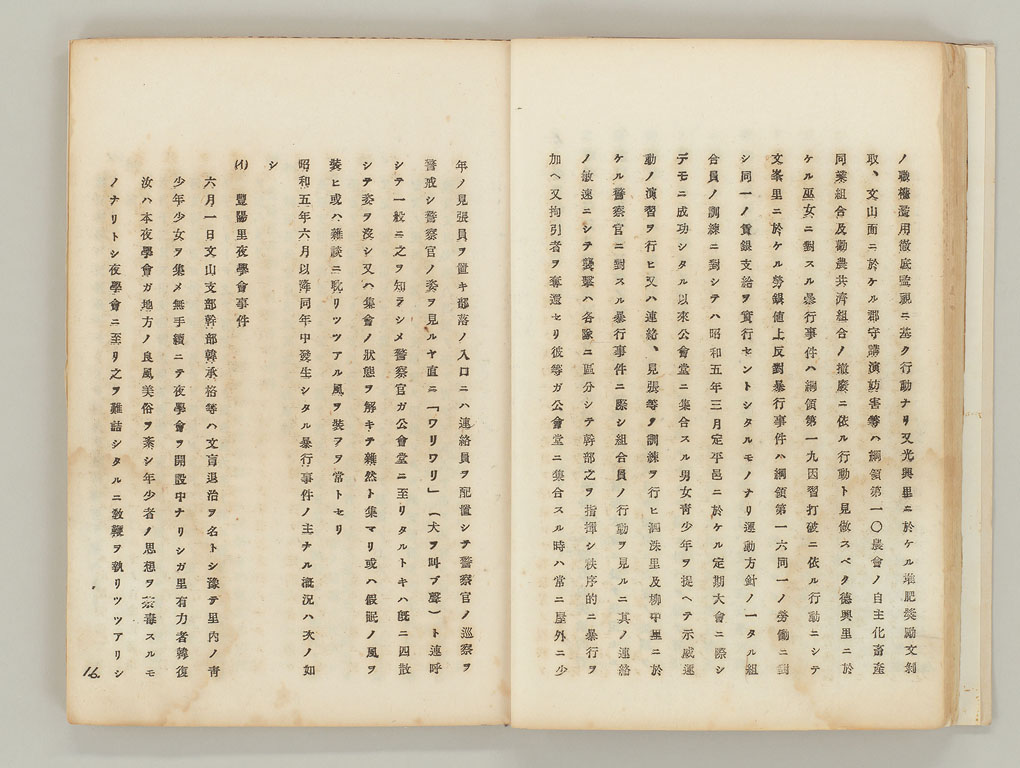 ノ職權濫用徹底監視ニ基ク行動ナリ又光興里ニ於ケル堆肥奬勵文剝
取、文山面ニ於ケル郡守講演妨害等ハ綱領第一〇農會ノ自主化畜產
同業組合及勸農共濟組合ノ撤廢ニ依ル行動ト見做スベク德興里ニ於
ケル巫女ニ對スル暴行事件ハ綱領第一九因習打破ニ依ル行動ニシテ
文峯里ニ於ケル勞銀値上反對暴行事件ハ綱領第一六同一ノ勞働ニ對
シ同一ノ賃銀支給ヲ實行セントシタルモノナリ運動方針ノ一タル組
合員ノ訓練ニ對シテハ昭和五年三月定平邑ニ於ケル定期大會ニ際シ
デモニ成功シタル以來公會堂ニ集合スル男女靑少年ヲ捉ヘテ示威運
動ノ演習ヲ行ヒ又ハ連絡、見張等ヲ訓練ヲ行ヒ泗洙里及柳中里ニ於
ケル警察官ニ對スル暴行事件ニ際シ組合員ノ行動ヲ見ルニ其ノ連絡
ノ敏速ニシテ襲擊ハ各隊ニ區分シテ幹部之ヲ指揮シ秩序的ニ暴行ヲ
加ヘ又拘引者ヲ奪還セリ彼等ガ公會堂ニ集合スル時ハ常ニ屋外ニ少
年ノ見張員ヲ置キ部落ノ入口ニハ連絡員ヲ配置シテ警察官ノ巡察ヲ
警戒シ警察官ノ姿ヲ見ルヤ直ニ「ワリワリ」(犬ヲ叫ブ聲)ト連呼
シテ一般ニ之ヲ知ラシメ警察官ガ公會堂ニ至リタルトキハ旣ニ四散
シテ姿ヲ沒シ又ハ集會ノ狀態ヲ解キテ雜然ト集マリ或ハ假眠ノ風ヲ
裝ヒ或ハ雜談ニ耽リツツアル風ヲ裝ヲヲ常トセリ
昭和五年六月以降同年中發生シタル暴行事件ノ主ナル槪況ハ次ノ如
シ
(イ) 豐陽里夜學會事件
六月一日文山支部幹部韓承格等ハ文盲退治ヲ名トシ豫テ里內ノ靑
少年少女ヲ集メ無手續ニテ夜學會ヲ開設中ナリシガ里有力者韓復
汝ハ本夜學會ガ地方ノ良風美俗ヲ紊シ年少者ノ思想ヲ茶毒スルモ
ノナリトシ夜學會ニ至リ之ヲ難詰シタルニ敎鞭ヲ執リツツアリシ
16.